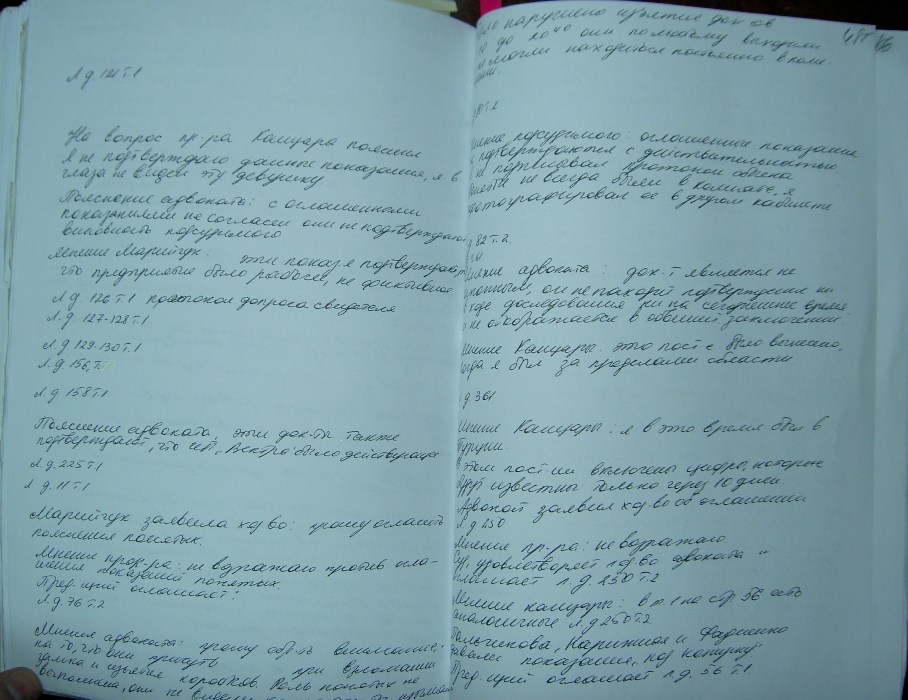 Л.д 121 т.1
На вопрос пр-ра Канцара пояснил
Я не подтверждаю данные показания, я в
глаза не видел эту девушку
Пояснение адвоката: с оглашенными
показаниями не согласен они не подтверждают
виновность подсудимого
Мнение Марийчук: эти показ-я подтверждают
что предприятие было рабочее, не
Л.д 126 т.1 протокол допроса свидетеля
Л.д 127-128 т.1
Л.д 129-130 т.1
Л.д. 156, т.
Л.д 158 т.1
Пояснение адвоката: эти док-ты также
подтверждают, что было действующее
Л.д. 225 т.1
Л.д. 11 т.1
Марийчук заявила ход-во: прошу огласить
пояснения понятых.
Мнение прок-ра: не возражаю против огла-
шения показаний понятых.
Пред-щий оглашает:
Л.д. 76 т.2
Мнение адвоката: прошу обр-ть внимание,
на то, что они при взломании
замка и изъятия коробков. Роль понятых не
выполнена, они не видели
нарушено изъятие док-ов
до 20 40 они по-любому выходили
могли находиться постоянно в
т.2
мнение подсудимого: оглашенные показания
подтверждаются с действительностью
не подписывал протокол обыска
не всегда были в комнате, я
фотографировал ее в другом кабинете
82 т.2.
мнение адвоката: док-т является не
он не находит подтверждения ни
в ходе доследования ни на сегодняшнее время
и не отображается в обвинит заключении
Мнение Канцары: это пост-е было вынесено,
когда я был за пределами области
д 361
Мнение Канцары: я в это время был в
Турции.
В этом пост-ии включены цифры, которые
будут известны только через 10 дней
Адвокат заявил ход-во об оглашении
Л.д 250
Мнение пр-ра: не возражаю
Суд удовлетворяет ход-во адвоката и
оглашает л.д. 250 т.2
Мнение Канцары: в т.1 на стр. 56 есть
аналогичные л.д 250 т.2
Нарижная и Фадиенко
давали показания, под копирку
Пред-щий оглашает л.д. 56 т.1.